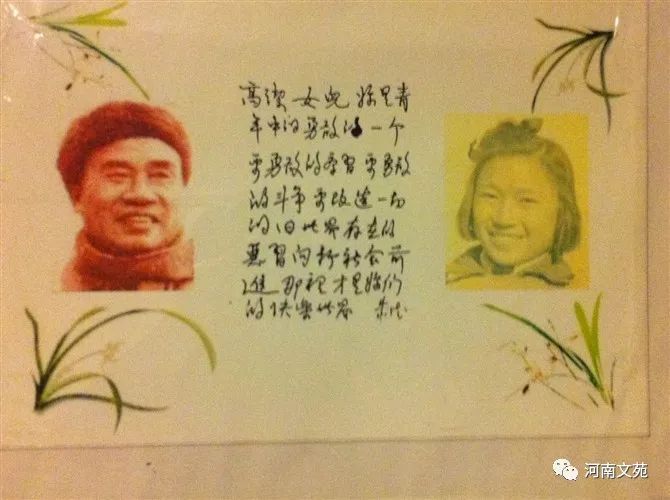 高洁女儿 妳是青
年中的勇敢的一个
要勇敢的学习要勇敢
的斗争要改造一切
的旧世界存在的
恶习向新社会前
进 那裡才是妳们
的快乐世界 朱德
河南文苑